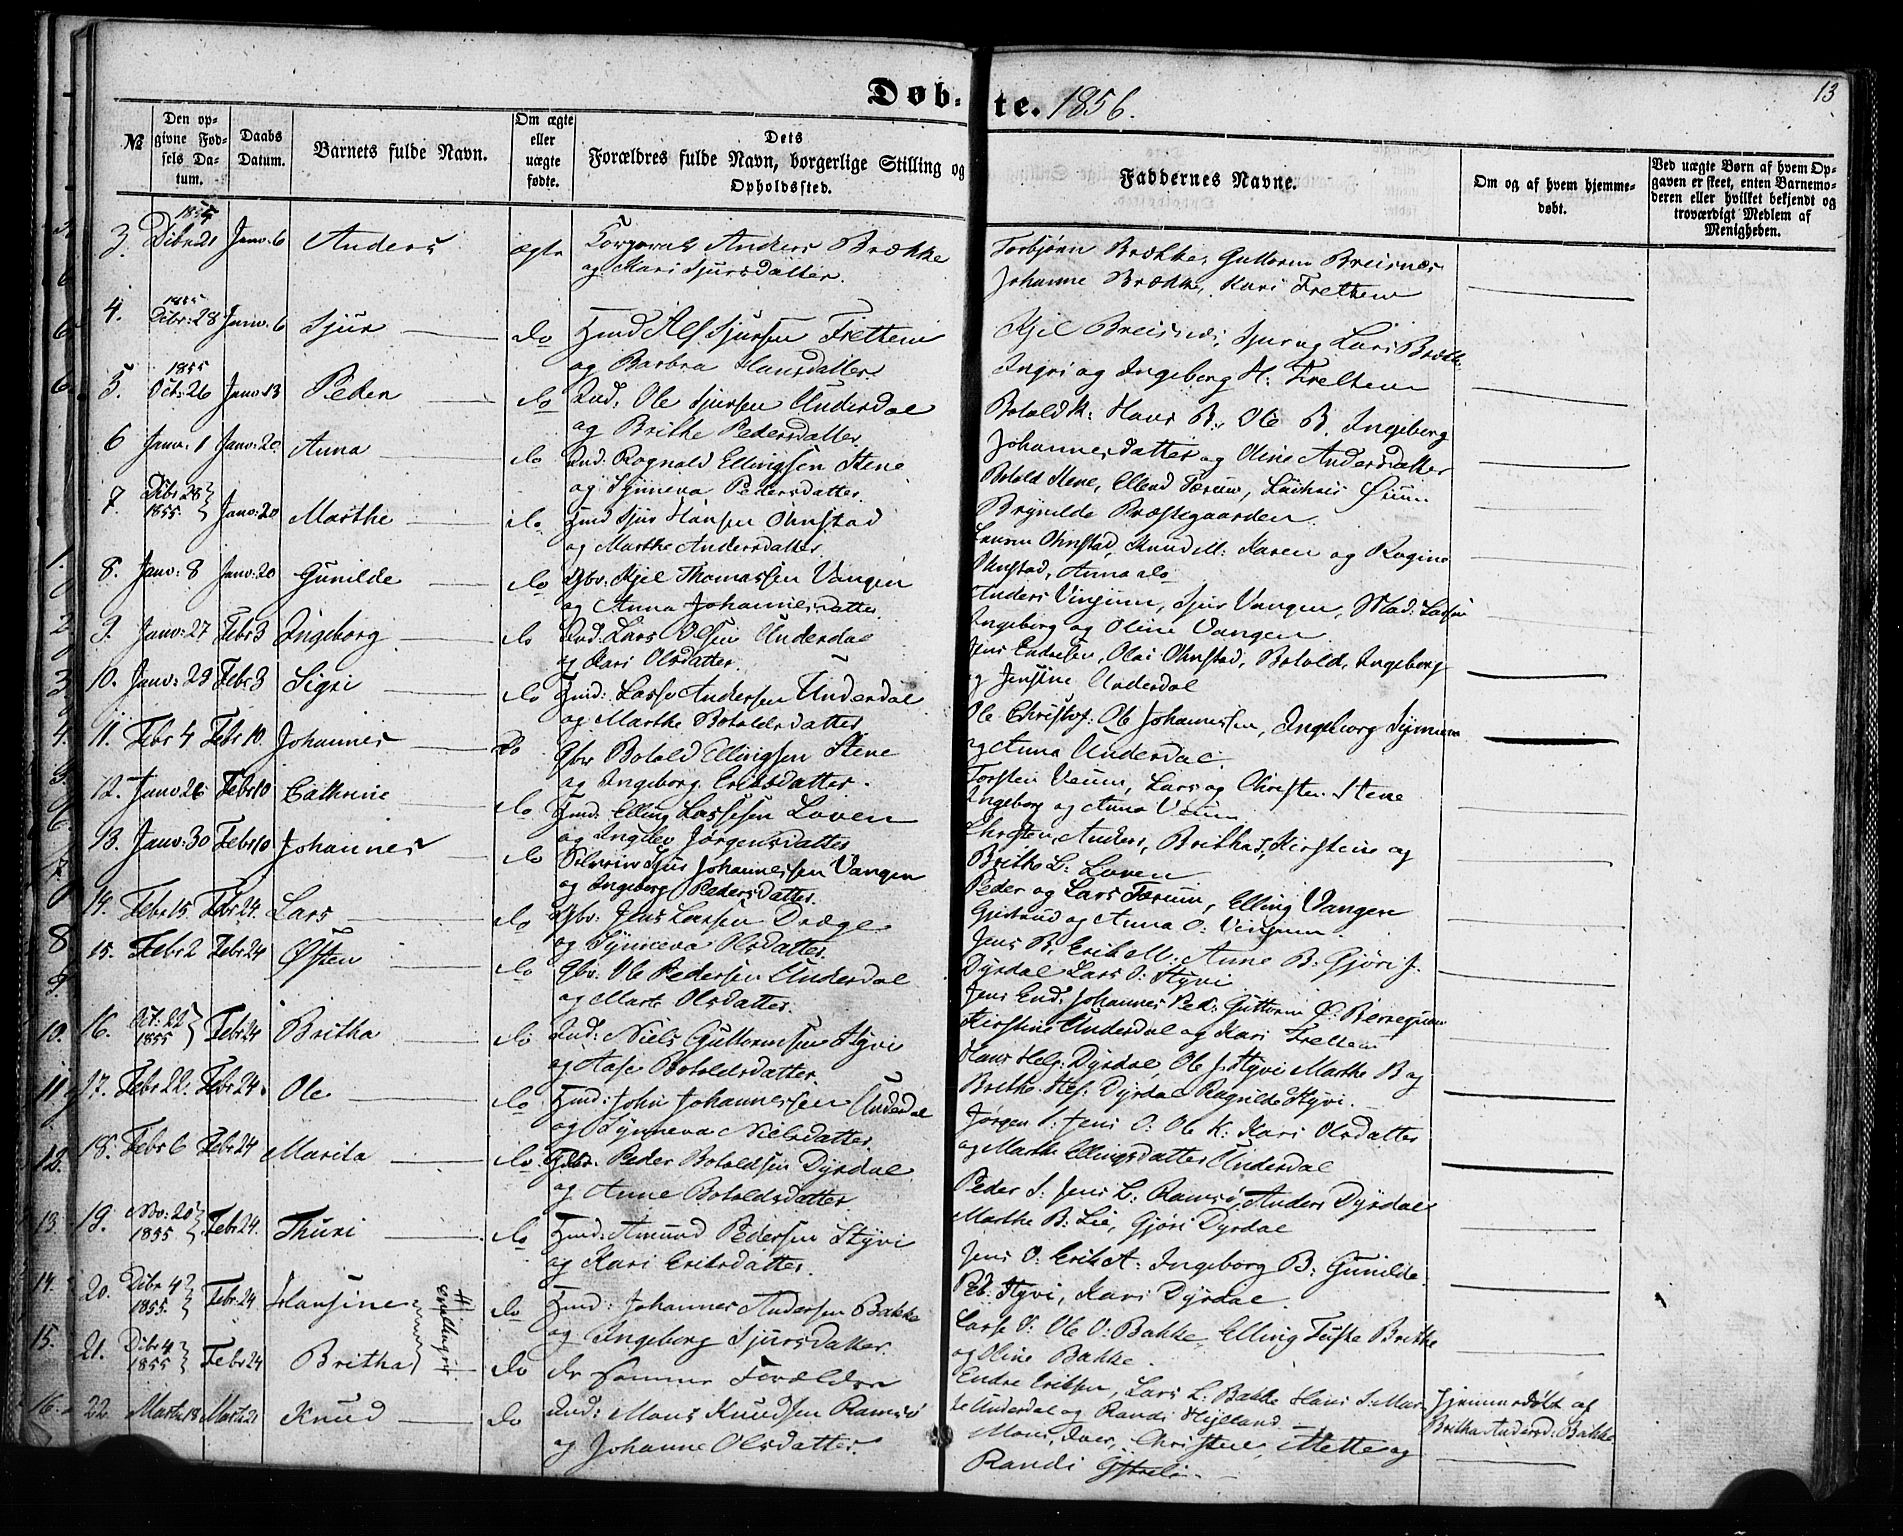 Døb-te. 1856.
13
№
Den opgivne Fødsels Datum.
Daabs Datum.
Barnets fulde Navn.
Om ægte eller uægte fødte.
Dets Forældres fulde Navn, borgerlige Stilling og Opholdssted.
Faddernes Navne.
Om og af hvem hjemmedøbt.
Ved uægte Børn af hvem Opgaven er skeet, enten Barnemoderen eller hvilket bekjendt og troværdigt Medlem af Menigheden.
3. 1855 Dibr 21 Janv: 6 Anders ægte Anders Brække
og Kari Sjursdatter.
Torbjørn Brække, Guttorm Breisnes
Johanne Brække, Kari Frettem
4. 1855 Dibr: 28 Janv: 6 Sjur do Hmd Alf Sjursen Frettem
og Barbra Hansdatter
Kjel Breisnes, Sjur og Lari Brække
Ingri og Ingeborg H: Frettem
5. 1855 Oct: 26 Janv: 13 Peder do Ind: Ole Sjursen Underdal
og Brithe Pedersdatter
Botold K: Hans B., Ole B. Ingeborg
Johannesdatter og Oline Andersdatter
6 Janv: 1 Janv: 20 Anna do Ind: Rognald Ellingsen Stene
og Synneva Pedersdatter
Botold Stene, Ellend Færum,
Brynilde Præstegaarden.
7 Dibr 28 1855. Janv: 20 Marthe do Hmd Sjur Hansen Ohnstad
og Marthe Andersdatter
Ohnstad, Knud M: Karen og Ragine
Ohnstad, Anna
8. Janv: 8 Janv: 20 Gunilde do Gbr: Kjel Thomassen Vangen
og Anna Johannesdatter
Anders Vinjum, Sjur Vangen, Mad: Lassen
Ingeborg og Oline Vangen
9. Janv: 27 Febr 3 Ingeborg do Ind: Lars Olsen Underdal
og Kari Olsdatter.
Jens Endresen, Olai Ohnstad, Botold, Ingeborg
og Jensine Underdal
10. Janv: 29 Febr 3 Sigri do Hmd: Lasse Andersen Underdal
og Marthe Botoldsdatter
Ole Christof: Ole Johannessen, Ingeborg Synneva
og Anna Underdal.
11. Febr 4 Febr 10. Johannes do Gbr Botold Ellingsen Stene
og Ingeborg Eriksdatter.
Torsten Veum, Lars og Christen Stene
Ingeborg og Anna Veum
12. Janv 26 Febr 10 Cathrine do Hmd: Elling Lassesen Loven
og Ingelev Jørgensdatter
Christen, Anders, Britha, Kirstine og
Britha L: Loven
13. Janv: 30 Febr 10 Johannes do Sjur Johannessen Vangen
og Ingeborg Pedersdatter.
Peder og Lars Færum, Elling Vangen
Gjertrud og Anna O: Vinjum.
14. Febr 15. Febr 24. Lars do Gbr: Jens Larsen Drægе
og Synneva Olsdatter.
Jens B. Erik M: Anne B: Gjøri J.
Dyrdal Lars O: Styvi
15. Febr 2 Febr 24 Østen do Gbr: Ole Pedersen Underdal
og Mart: Olsdatter.
Jens End: Johannes Ped: Guttorm
Kirstine Underdal og Kari Frettem
16. Oct: 22 1855 Febr 24 Britha do Ind: Niels Guttormsen Styvi
og Aase Botoldsdatter.
Hans Helg: Dyrdal, Ole J. Styvi Marthe B og
Brithe Hel: Dyrdal Ragnilde Styvi.
17. Febr 22. Febr 24. Ole do Hmd: John Johannessen Underdal
og Synneva Nielsdatter.
Jørgen S. Jens O: Ole K: Kari Olsdatter
og Marthe Ellingsdatter Underdal
18. Febr 6 Febr 24 Marita do Gbr. Peder Botoldsen Dyrdal
og Anne Botoldsdatter.
Peder S: Jens L: Ramsø, Anders Dyrdal
Marthe B: Lie, Gjøri Dyrdal
19. Nov: 20 1855 Febr 24. Thuri do Hmd: Amund Pedersen Styvi
og Kari Eriksdatter.
Jens O: Erik A: Ingeborg B: Gunilde
Ped: Styvi, Kari Dyrdal.
20. Dibr 4 1855. Febr 24 Hansine do Hmd: Johannes Andersen Bakke
og Ingeborg Sjursdatter.
Lasse O: Ole O: Bakke, Elling Tufte Brithe
og Oline Bakke.
Tvillinger
21. Dibr 4 1855 Febr 24 Britha do de samme Forældre
Endre Eriksen, Lars L. Bakke Hans
Underdal og Randi Hylland
22. Marts 18 Marts 21 Knud do Ind: Mons Knudsen Ramsø
og Johanne Olsdatter.
Mons, Iver, Christen, Mette og
Randi
Hjemmedøbt af
Britha Andersd: Bakke